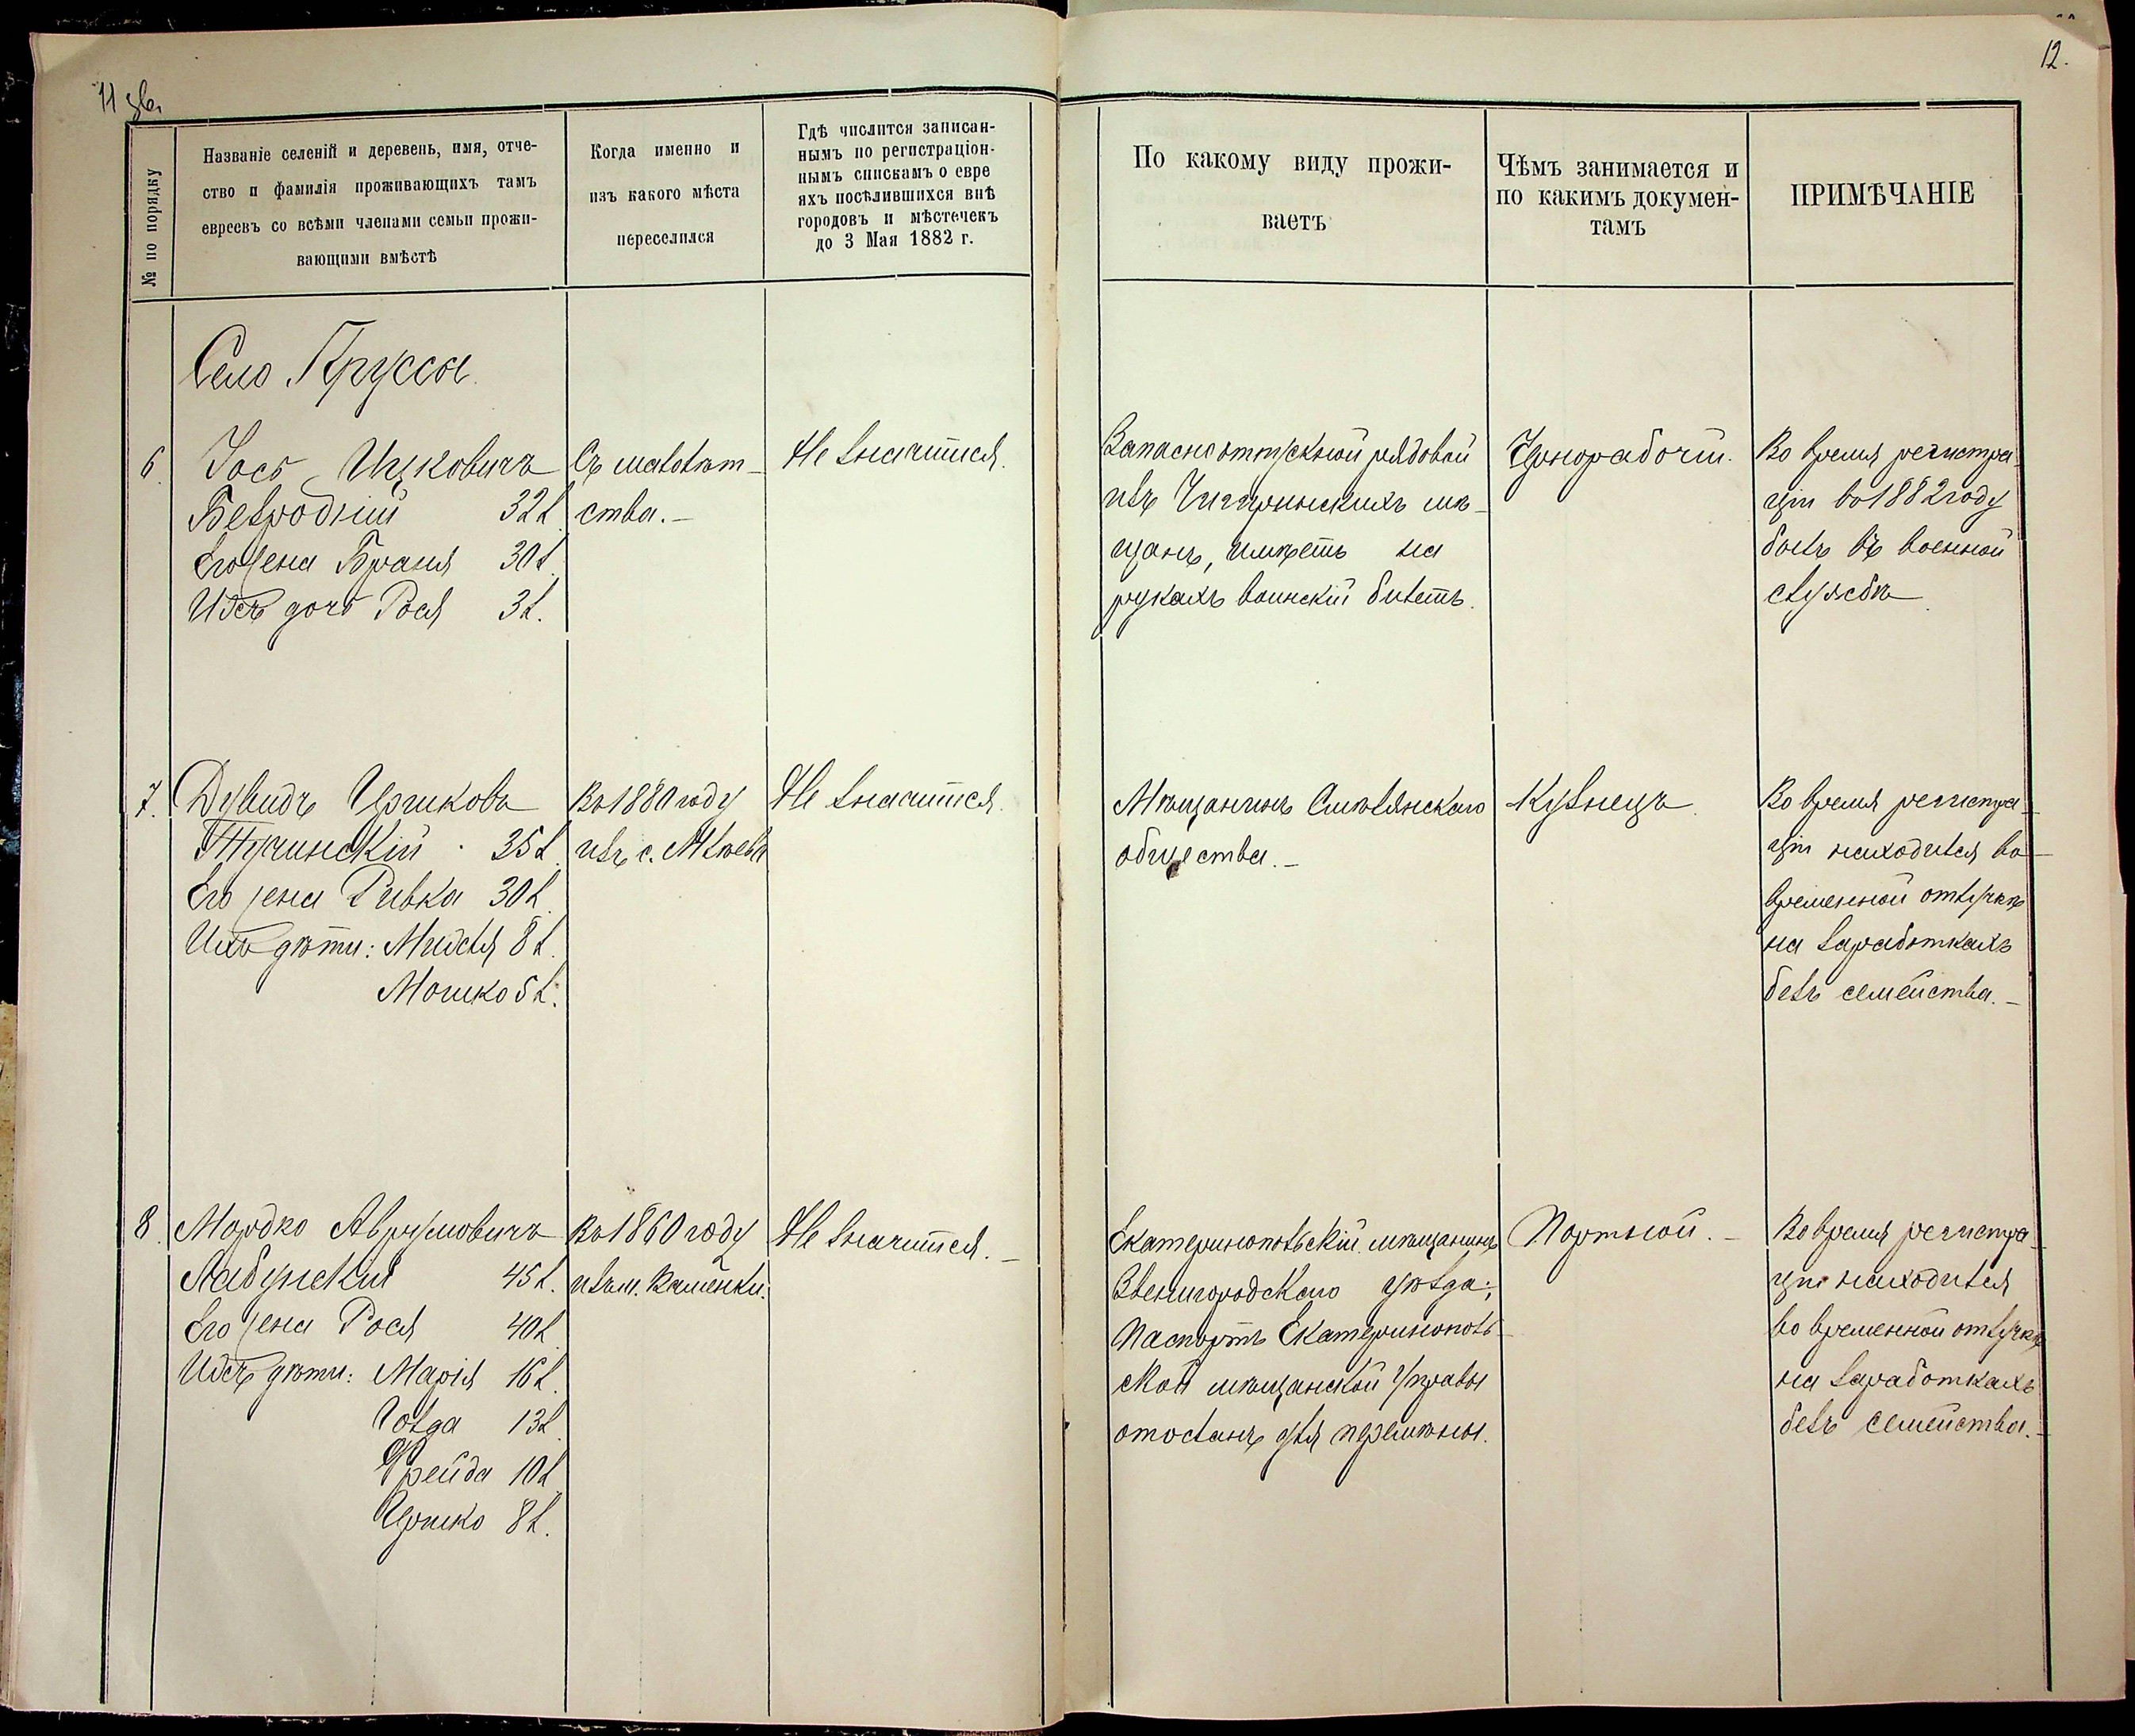 11 зв.
12.
№ по порядку
Названіе селеній и деревень, имя, отче-
ство и фамилія проживающихъ тамъ
евреевъ со всѣми членами семьи прожи-
вающими вмѣстѣ
Когда именно и
изъ какого мѣста
переселился
Гдѣ числится записан-
нымъ по регистраціон-
нымъ спискамъ о евре
яхъ посѣлившихся внѣ
городовъ и мѣстечекъ
до 3 Мая 1882 г.
По какому виду прожи-
ваетъ
Чѣмъ занимается и
по какимъ докумен-
тамъ
ПРИМѢЧАНІЕ
Село Пруссы
6.
Іось Ицковичъ
Безродній 32 л.
Его жена Браня 30 л.
Ихъ дочь Рося 3 л.
Съ малолѣт-
ства.-
Не значится.
Запасноотпускной рядовой
изъ Чигиринскихъ мѣ-
щанъ, имѣетъ на
рукахъ воинскій билетъ.
Чернорабочій.
Во время регистра-
ціи въ 1882 году
былъ въ военной
службѣ
7.
Дувидъ Ицковъ
Тучинскій 35 л.
Его жена Ривка 30 л.
Ихъ дѣти: Миндля 8 л.
Мошко 5 л.
Въ 1880 году
изъ с. Млѣева
Не значится.
Мѣщанинъ Смѣлянскаго
общества.-
Кузнецъ.
Во время регистра-
ціи находился во
временной отлучкѣ
на заработкахъ
безъ семейства.-
8.
Мордко Аврумовичъ
Лабунскій 45 л.
Его жена Рося 40 л.
Ихъ дѣти: Марія 16 л.
Голда 13 л.
Фрейда 10 л.
Ершко 8 л.
Въ 1860 году
изъ м. Каменки.
Не значится.-
Екатеринопольскій мѣщанинъ
Звенигородскаго уѣзда;
Паспортъ Екатеринополь-
ской мѣщанской Управы
отосланъ для перемѣны.
Портной.-
Во время регистра-
ціи находился
во временной отлучкѣ
на заработкахъ
безъ семейства.-